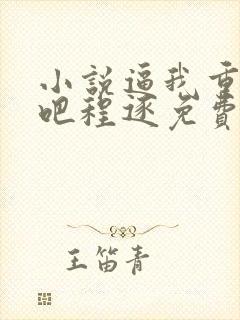 小說逼我重
吧程逐免費
王笛青